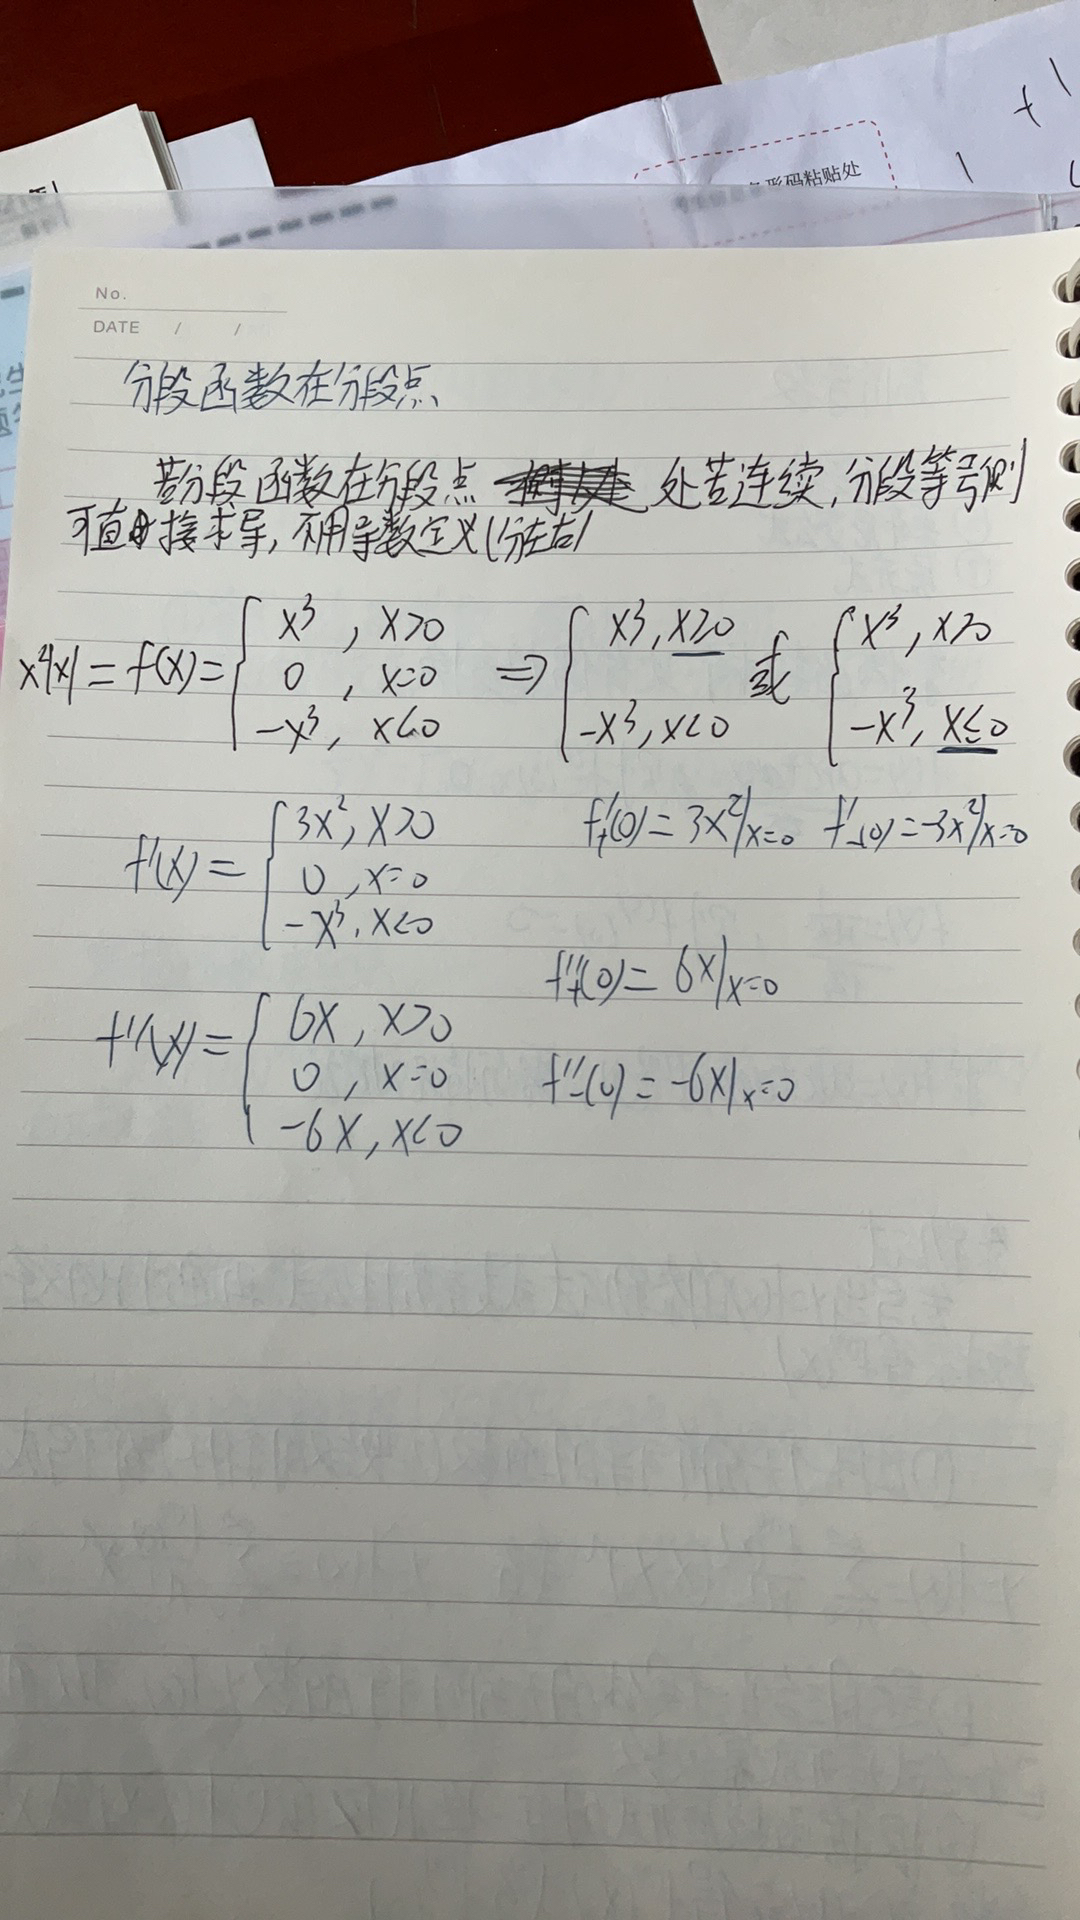 条形码粘贴处
No.
DATE / /
分段函数在分段点
若分段函数在分段点 处若连续,分段等号则
可直接求导,不用导数定义(分左右)
x²|x| = f(x) = { x³, x>0 ; 0, x=0 ; -x³, x<0 ⇒ { x³, x≥0 ; -x³, x<0 或 { x³, x>0 ; -x³, x≤0
f'(x) = { 3x², x>0 ; 0, x=0 ; -x³, x<0
f'₊(0) = 3x²|x=0 f'₋(0) = -3x²|x=0
f''(x) = { 6x, x>0 ; 0, x=0 ; -6x, x<0
f''₊(0) = 6x|x=0
f''₋(0) = -6x|x=0